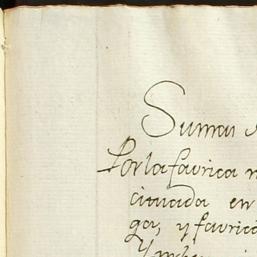 Sumas
Por la favrica
cituada en
ga, y favric